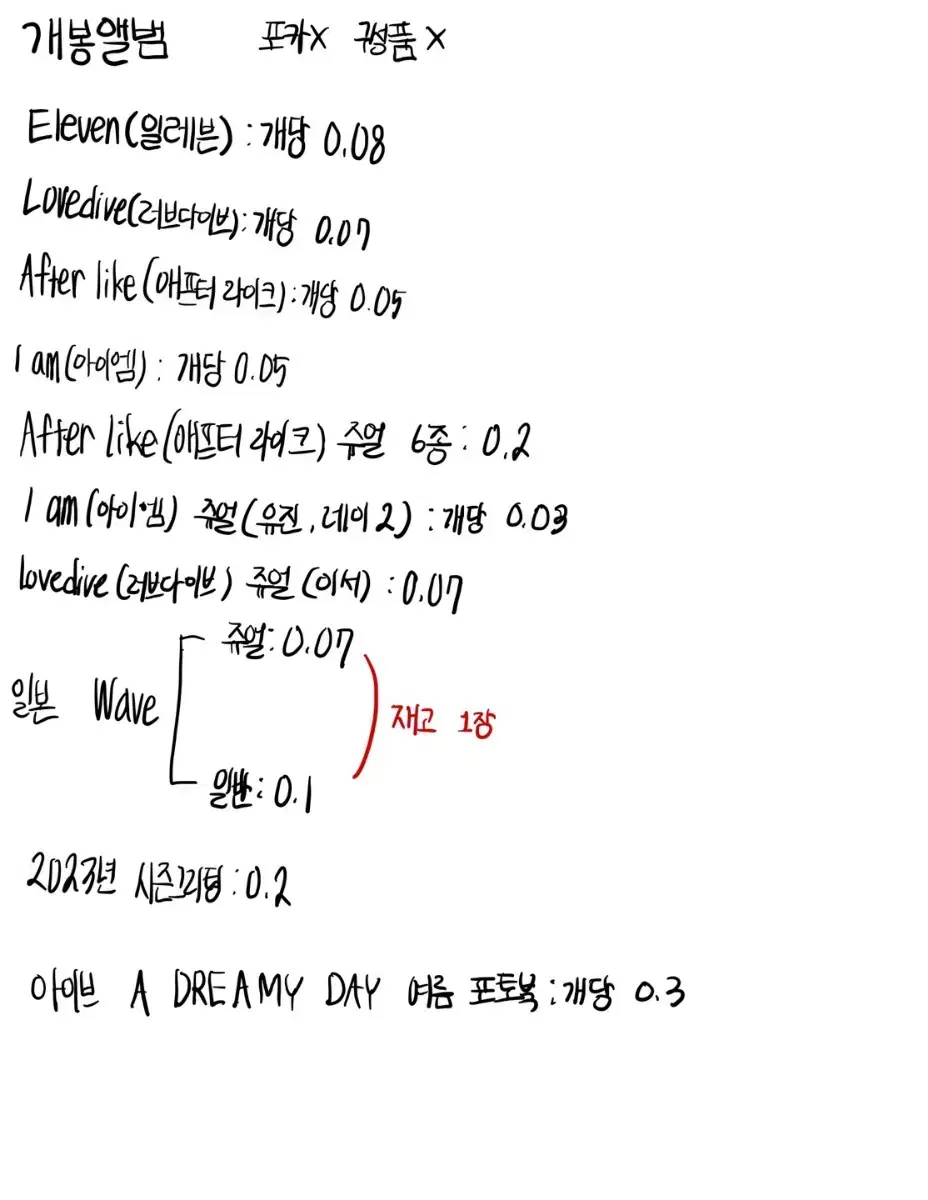 개봉앨범 포카X 구성품X
Eleven(일레븐) : 개당 0.08
Lovedive(러브다이브) : 개당 0.07
After like(애프터 라이크) : 개당 0.05
I am(아이엠) : 개당 0.05
After like(애프터 라이크) 쥬얼 6종 : 0.2
I am(아이엠) 쥬얼(유진, 레이2) : 개당 0.03
lovedive(러브다이브) 쥬얼 (이서) : 0.07
쥬얼: 0.07
일본 Wave
재고 1장
일반: 0.1
2023년 시즌그리팅 : 0.2
아이브 A DREAMY DAY 여름 포토북 : 개당 0.3